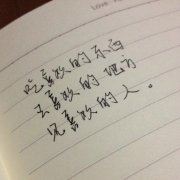 Love
吃喜欢的东西
去喜欢的地方
见喜欢的人。